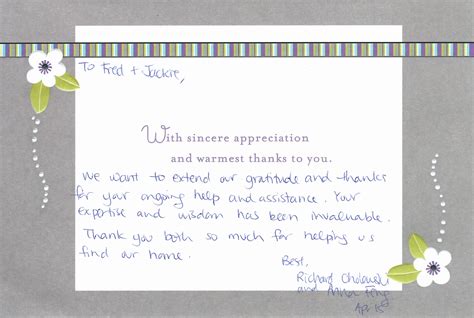 To Fred + Jackie,
With sincere appreciation
and warmest thanks to you.
We want to extend our gratitude and thanks
for your ongoing help and assistance. Your
expertise and wisdom has been invaluable.
Thank you both so much for helping us
find our home.
Best,
Richard
and Anna